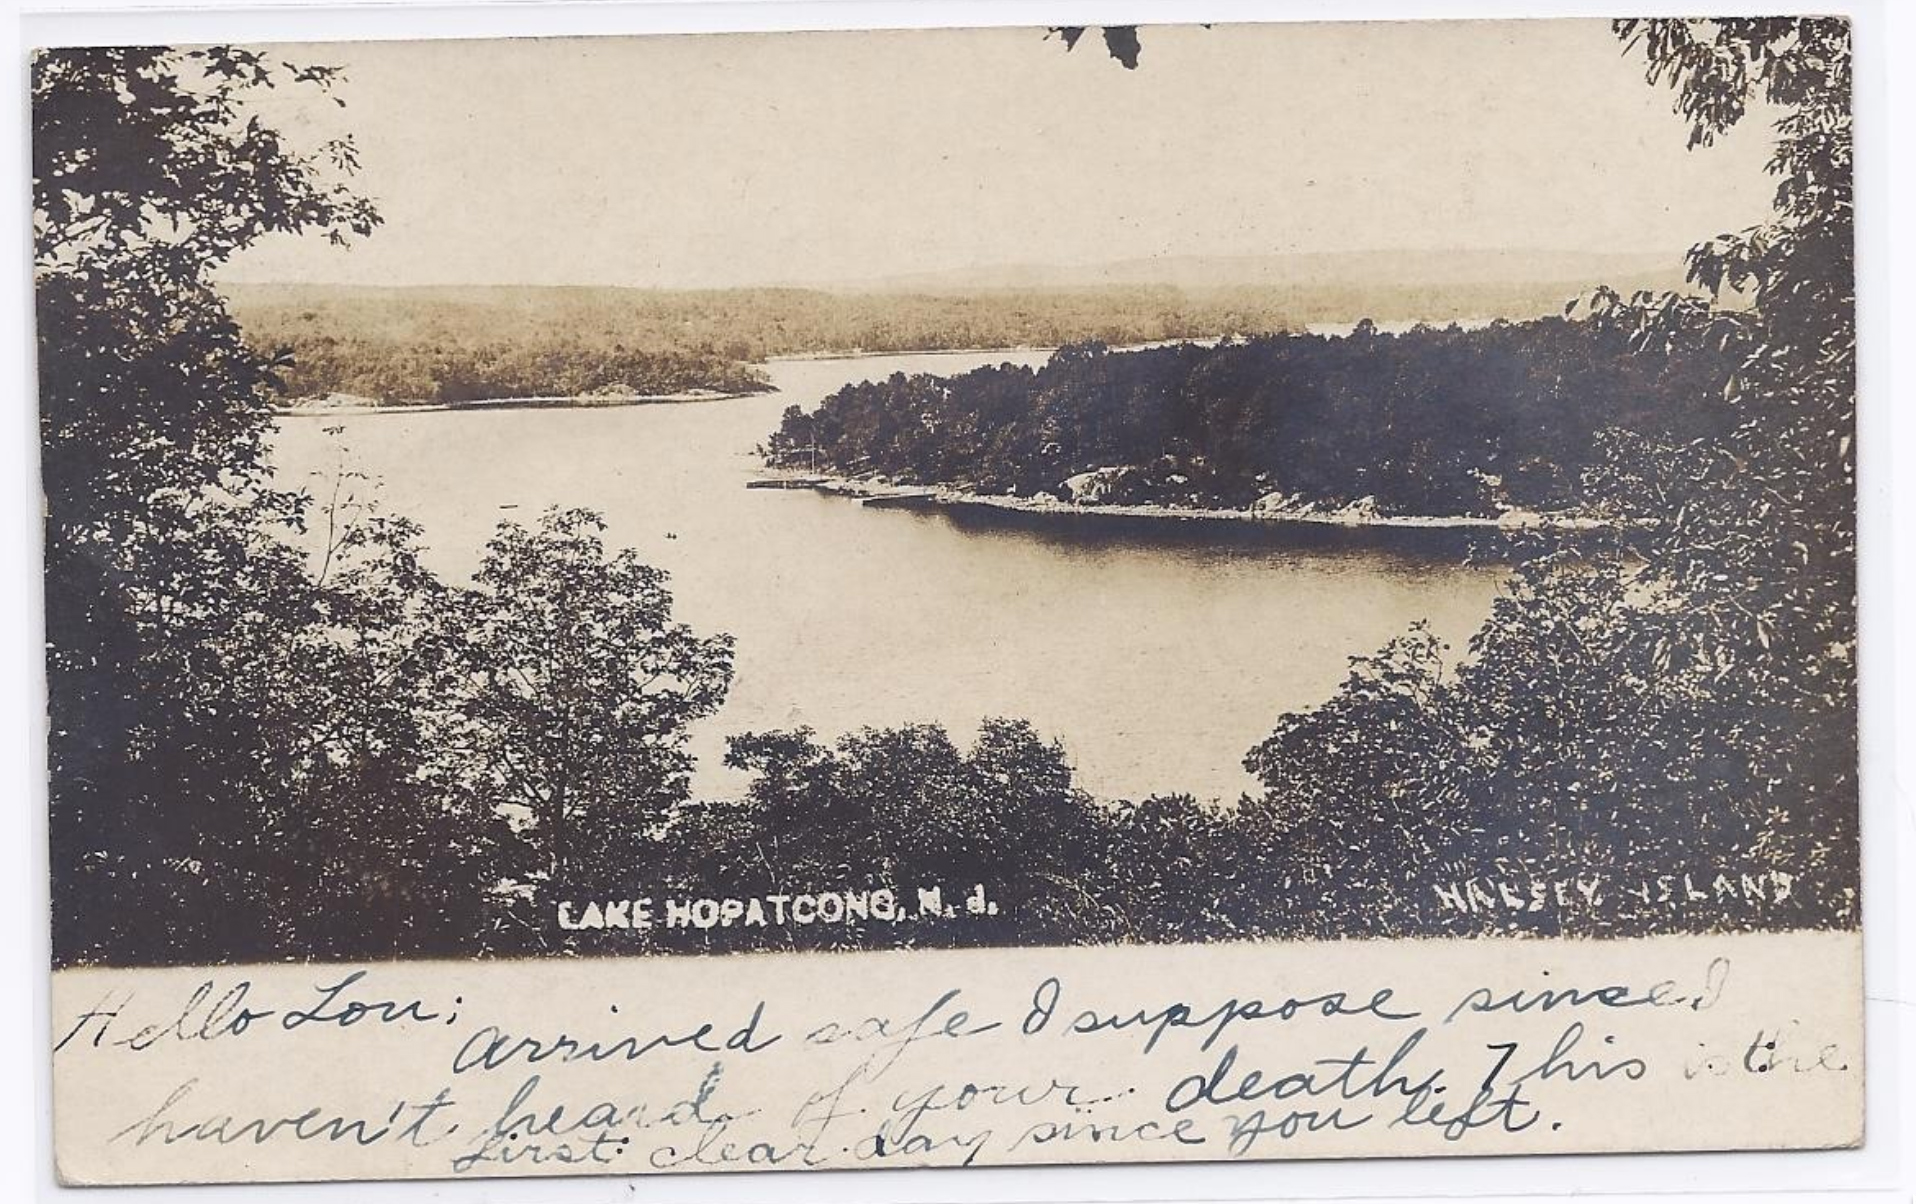 LAKE HOPATCONG, N. J.
HALSEY ISLAND
Hello Lou;
arrived safe I suppose since I
haven't heard of your death. This is the
first clear day since you left.